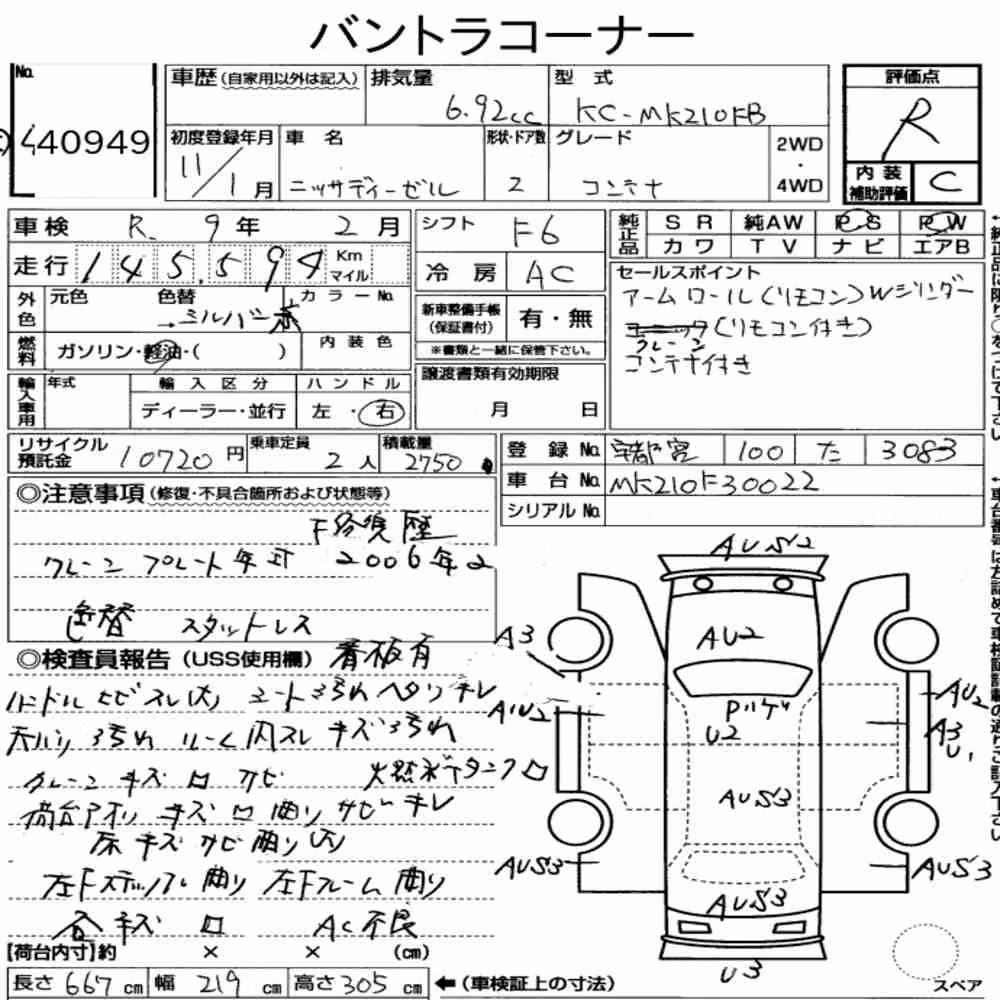 バントラコーナー
No.
440949
車歴(自家用以外は記入)
排気量
6.92cc
型 式
KC-MK210FB
評価点
R
初度登録年月
11/1月
車 名
ニッサディーゼル
形状・ドア数
2
グレード
コンテナ
2WD
・
4WD
内 装
補助評価
C
車検 R. 9年 2月
シフト F6
純正品
SR 純AW PS PW
カワ TV ナビ エアB
走行 145,594 Km マイル
冷 房 AC
セールスポイント
アームロール(リモコン)Wシリンダー
クレーン(リモコン付き)
コンテナ付き
外色
元色 色替 カラーNo.
→シルバー
新車整備手帳
(保証書付)
有・無
※書類と一緒に保管下さい。
燃料
ガソリン・軽油・( )
内 装 色
譲渡書類有効期限
月 日
輸入車用
年式
輸 入 区 分
ハ ン ド ル
ディーラー・並行
左・右
リサイクル
預託金
10720円
乗車定員
2人
積載量
2750
登 録 No. 宇都宮 100 た 3083
車 台 No. MK210F30022
シリアルNo.
◎注意事項(修復・不具合箇所および状態等)
F修復歴
クレーン プレート年式 2006年2
色替 スタットレス
◎検査員報告(USS使用欄) 看板有
ハンドルヒビスレ(大) シート汚れヘタリキレ
天バリ汚れ ルーム内スレキズ汚れ
クレーンキズ凹サビ
荷台アオリ キズ凹曲りサビキレ
床キズサビ曲り
左Fステップ曲り 左Fフレーム曲り
各キズ凹 AC不良
【荷台内寸】約 × × (cm)
長さ 667 cm 幅 219 cm 高さ 305 cm
←(車検証上の寸法)
AUS2
AU2
A3
AU2
U2
AU2
A3
U1
AUS3
AUS3
AUS3
AUS3
U3
スペア